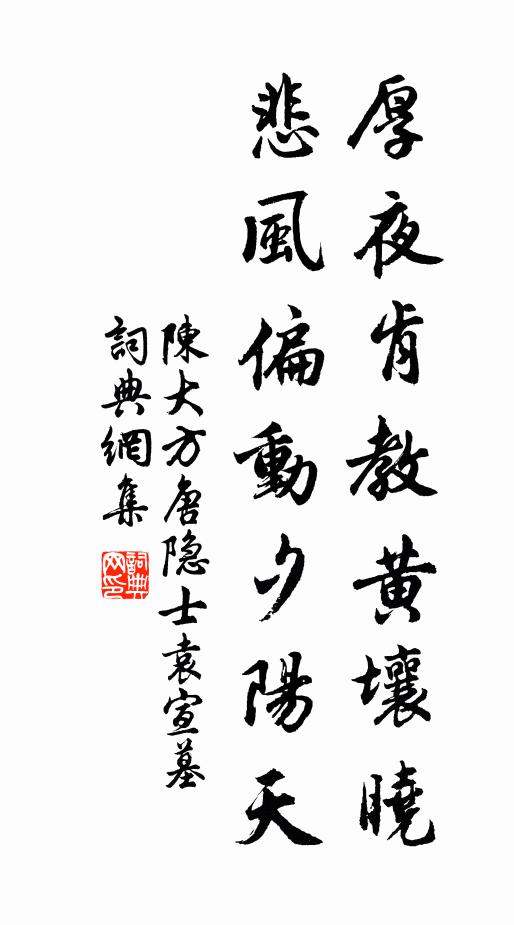 厚夜肯教黃壤曉
悲風偏動夕陽天
陳大方唐隐士袁宣墓
詞典網集
詞典网印